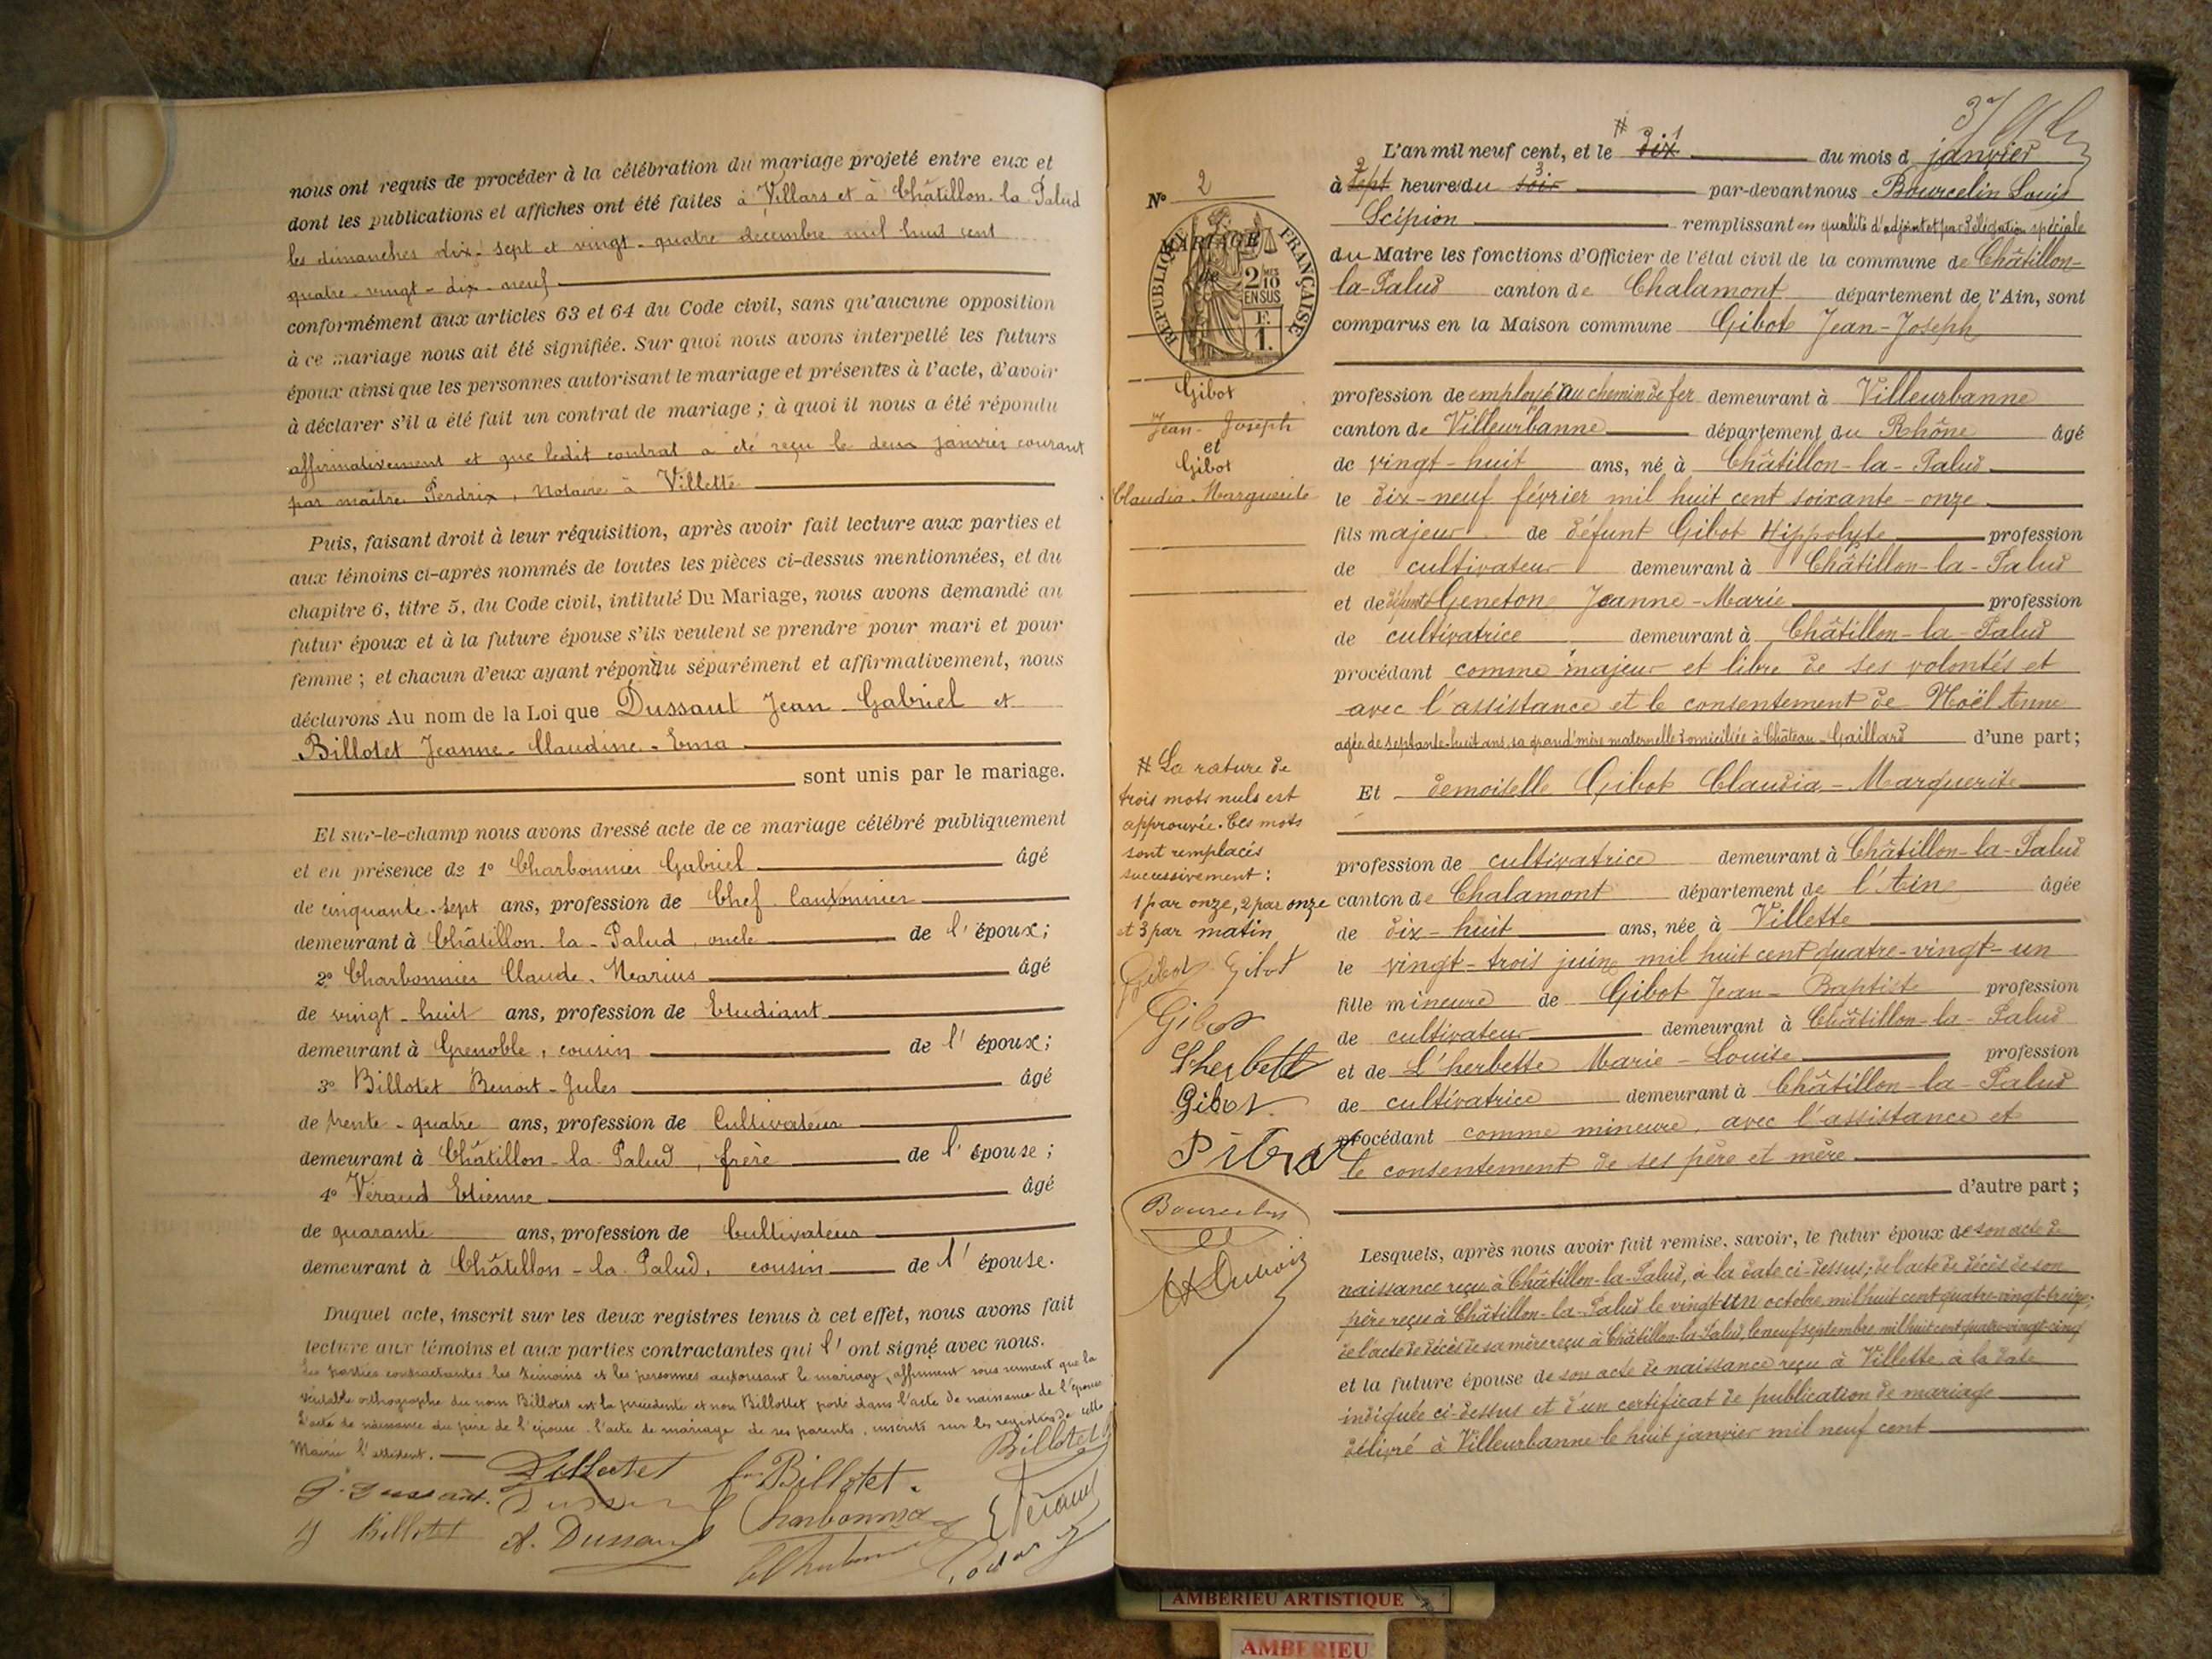 nous ont requis de procéder à la célébration du mariage projeté entre eux et
dont les publications et affiches ont été faites à Villars et à Châtillon-la-Palud
les dimanches dix-sept et vingt-quatre décembre mil huit cent
quatre-vingt-dix-neuf
conformément aux articles 63 et 64 du Code civil, sans qu'aucune opposition
à ce mariage nous ait été signifiée. Sur quoi nous avons interpellé les futurs
époux ainsi que les personnes autorisant le mariage et présentes à l'acte, d'avoir
à déclarer s'il a été fait un contrat de mariage ; à quoi il nous a été répondu
affirmativement et que ledit contrat a été reçu le deux janvier courant
par maître Perdrix, Notaire à Villette
Puis, faisant droit à leur réquisition, après avoir fait lecture aux parties et
aux témoins ci-après nommés de toutes les pièces ci-dessus mentionnées, et du
chapitre 6, titre 5, du Code civil, intitulé Du Mariage, nous avons demandé au
futur époux et à la future épouse s'ils veulent se prendre pour mari et pour
femme ; et chacun d'eux ayant répondu séparément et affirmativement, nous
déclarons Au nom de la Loi que Dussaut Jean-Gabriel et
Billotet Jeanne-Claudine-Ema
sont unis par le mariage.
Et sur-le-champ nous avons dressé acte de ce mariage célébré publiquement
et en présence de 1° Charbonnier Gabriel âgé
de cinquante-sept ans, profession de Chef Cantonnier
demeurant à Châtillon-la-Palud, oncle de l'époux ;
2° Charbonnier Claude-Marius âgé
de vingt-huit ans, profession de Etudiant
demeurant à Grenoble, cousin de l'époux ;
3° Billotet Benoit-Jules âgé
de trente-quatre ans, profession de Cultivateur
demeurant à Châtillon-la-Palud, frère de l'épouse ;
4° Véraud Etienne âgé
de quarante ans, profession de Cultivateur
demeurant à Châtillon-la-Palud, cousin de l'épouse.
Duquel acte, inscrit sur les deux registres tenus à cet effet, nous avons fait
lecture aux témoins et aux parties contractantes qui l'ont signé avec nous.
Les parties contractantes les témoins et les personnes autorisant le mariage, affirment sous serment que la
véritable orthographe du nom Billotet est la précédente et non Billottet porté dans l'acte de naissance de l'épouse
L'acte de naissance du père de l'épouse, l'acte de mariage de ses parents, inscrits sur les registres de cette
Mairie l'attestent.
Billotet
Billotet
Billotet
J. Dussaut.
Charbonnier
Véraud
J Billotet
A. Dussaut
37
N° 2
MARIAGE
RÉPUBLIQUE FRANÇAISE
2/10 EN SUS
1 F.
L'an mil neuf cent, et le # dix 1 du mois d janvier
à sept 2 heures du soir 3 par-devant nous Bourcelin Louis
Scipion remplissant en qualité d'adjoint et par délégation spéciale
du Maire les fonctions d'Officier de l'état civil de la commune de Châtillon-
la-Palud canton de Chalamont département de l'Ain, sont
comparus en la Maison commune Gibot Jean-Joseph
Gibot
Jean-Joseph
et
Gibot
Claudia-Marguerite
profession de employé au chemin de fer demeurant à Villeurbanne
canton de Villeurbanne département du Rhône âgé
de vingt-huit ans, né à Châtillon-la-Palud
le dix-neuf février mil huit cent soixante-onze
fils majeur de défunt Gibot Hippolyte profession
de cultivateur demeurant à Châtillon-la-Palud
et de défunte Geneton Jeanne-Marie profession
de cultivatrice demeurant à Châtillon-la-Palud
procédant comme majeur et libre de ses volontés et
avec l'assistance et le consentement de Noël Anne
agée de septante-huit ans sa grand'mère maternelle domiciliée à Château-Gaillard d'une part ;
Et demoiselle Gibot Claudia-Marguerite
profession de cultivatrice demeurant à Châtillon-la-Palud
canton de Chalamont département de l'Ain âgée
de dix-huit ans, née à Villette
le vingt-trois juin mil huit cent quatre-vingt-un
fille mineure de Gibot Jean-Baptiste profession
de cultivateur demeurant à Châtillon-la-Palud
et de L'herbette Marie-Louise profession
de cultivatrice demeurant à Châtillon-la-Palud
procédant comme mineure, avec l'assistance et
le consentement de ses père et mère
d'autre part ;
# La rature de
trois mots nuls est
approuvée. Ces mots
sont remplacés
successivement :
1 par onze, 2 par onze
et 3 par matin
Gibot Gibot
Gibot
Lherbette
Gibot
Bourcelin
Dubois
Lesquels, après nous avoir fait remise, savoir, le futur époux de son acte de
naissance reçu à Châtillon-la-Palud, à la date ci-dessus ; de l'acte de décès de son
père reçu à Châtillon-la-Palud le vingt-un octobre mil huit cent quatre-vingt-treize ;
de l'acte de décès de sa mère reçu à Châtillon-la-Palud, le neuf septembre mil huit cent quatre-vingt-cinq
et la future épouse de son acte de naissance reçu à Villette, à la date
indiquée ci-dessus et d'un certificat de publication de mariage
délivré à Villeurbanne le huit janvier mil neuf cent
AMBERIEU ARTISTIQUE
AMBERIEU